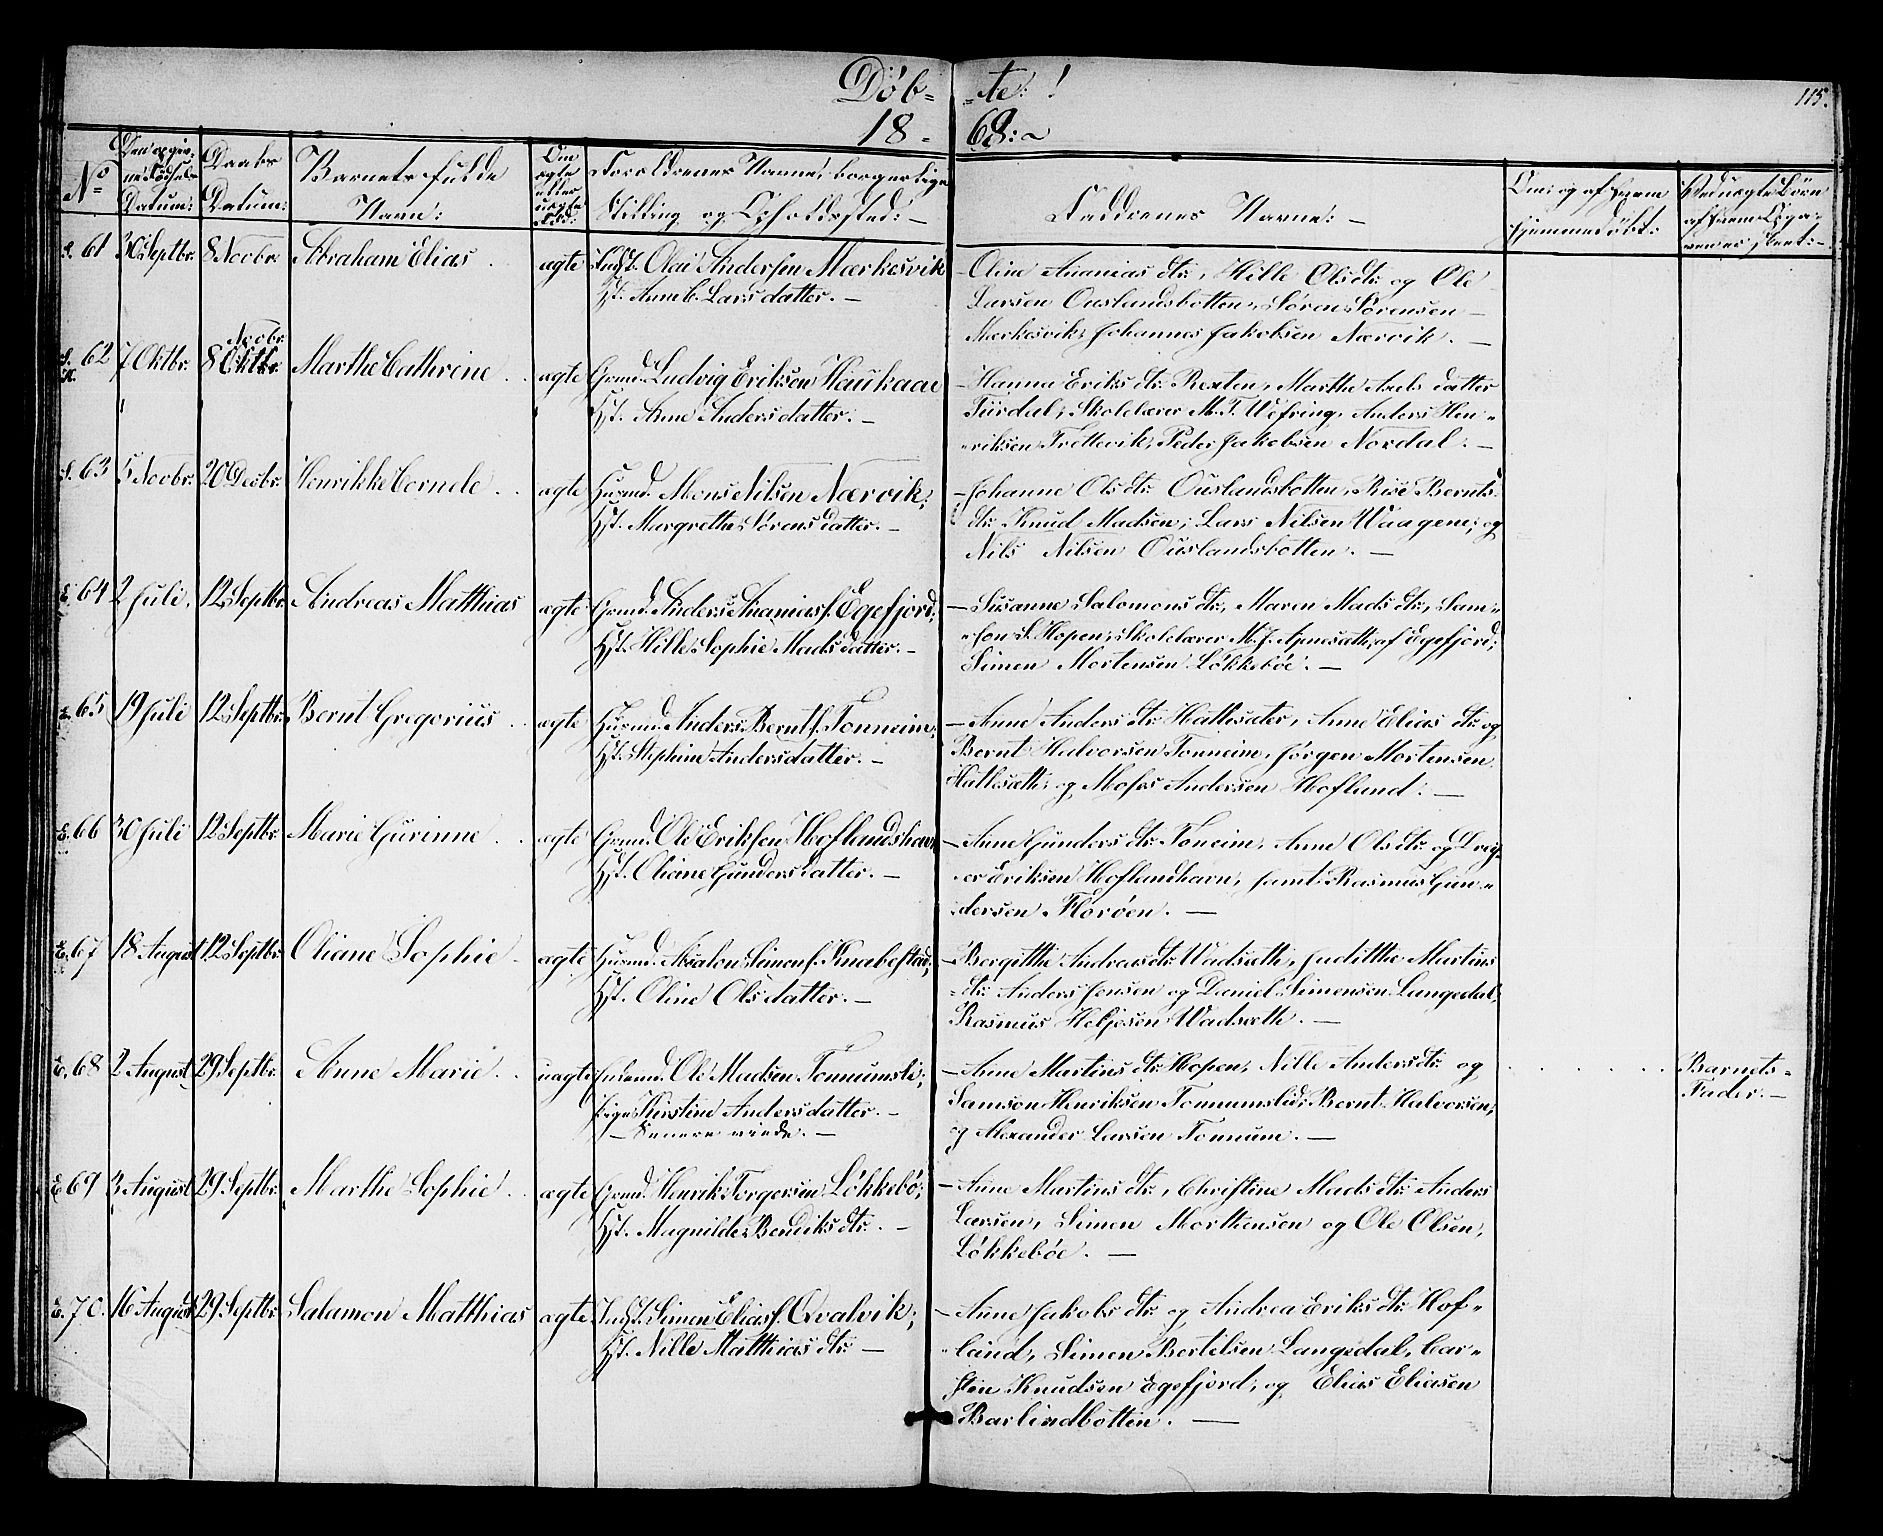 Døb- -te!
115.
18- 68:~
No
Den opgiv-
ne Fødsels-
Datum:
Daabs
Datum:
Barnets fulde
Navn:
Om
ægte
eller
uægte
Født:
Forældrenes Navne, borgerlige
Stilling og Opholdssted: —
Faddrenes Navne: —
Om og af hvem
hjemmedøbt:
Ved uægte Børn
61 30 Septbr. 8 Novbr. Abraham Elias ægte Indst. Olai Andersen Mærkesvik
Hst. Anne C. Larsdatter. —
— Oline Ananias dtr, Hille Ols dtr og Ole
Larsen Ouslandsbotten, Søren Sørensen
Mærkesvik, Johannes Jakobsen Nærvik. —
62 7 Oktbr. 8 Oktbr. Novbr. Marthe Cathrine ægte Grmd. Ludvig Eriksen Haukaae
Hst. Anne Andersdatter. —
— Hanna Eriks dtr Rexten, Marthe Axels datter
Turdal, Skolelærer M. T. Wefring, Anders Hen-
-riksen Trettevik, Peder Jakobsen Nordal. —
63 5 Novbr. 20 Decbr. Henrikke Cornele ægte Husmd. Mons Nilsen Nærvik;
Hst. Margrethe Sørensdatter. —
— Johanne Ols dtr Ouslandsbotten, Rise Bernts-
dtr Knud Madsen, Lars Nilsen Waagene; og
Nils Nilsen Ouslandsbotten. —
64 2 Juli, 12 Septbr. Andreas Matthias ægte Grmd. Anders Ananiass. Egefjord;
Hst. Hille Sophie Madsdatter. —
— Susanne Salomons dtr, Maren Mads dtr, Sam-
-son S. Hopen, Skolelærer M. J. Apnesæth, af Egefjord;
Simen Mortensen Løkkebøe. —
65 19 Juli 12 Septbr. Bernt Gregorius ægte Husmd. Anders Berntss. Tonneim;
Hst. Stephine Andersdatter. —
— Anne Anders dtr Hatlesæter, Anne Elias dtr og
Bernt Halvorsen Tonneim, Jørgen Mortensen
Hatlesæth; og Moses Andersen Hofland. —
66 30 Juli 12 Septbr. Marie Gurinne ægte Grmd. Ole Eriksen Hoflandshavn
Hst. Oliane Gundersdatter. —
— Anne Gunders dtr Toneim, Anne Ols dtr og
-er Eriksen Hoflandhavn, samt Rasmus Gun-
dersen Florøen. —
67 18 August 12 Septbr. Oliane Sophie ægte Husmd. Absalon Simens. Knabestad;
Hst. Oline Olsdatter. —
— Bergitthe Andreas dtr Wadsæth, Judithe Martins
-dtr Anders Jensen og Daniel Simensen Langedal,
Rasmus Heljesen Wadsæth. —
68 2 August 29 Septbr. Anne Marie uægte Ole Madsen Tonnumsli;
Pige Kirstine Andersdatter. —
— Senere viede. —
— Anne Martins dtr Hopen, Nille Anders dtr og
Samson Henriksen Tonnumslid; Bernt Halvorsen;
og Alexander Larsen Tonnum. —
Barnets
Fader. —
69 3 August 29 Septbr. Marthe Sophie ægte Grmd. Henrik Torgersen Løkkebø;
Hst. Magnilde Bendiks dtr. —
— Anne Martins dtr, Christine Mads dtr Anders
Larsen, Simen Morthensen og Ole Olsen,
Løkkebøe. —
70. 16 August 29 Septbr. Salamon Matthias ægte Indst. Simen Eliass. Qvalvik;
Hst. Nille Matthias dtr —
— Anne Jakobs dtr og Andrea Eriks dtr Hof-
-land, Simen Bertelsen Langedal, Car-
sten Knudsen Egefjord; og Elias Eliasen
Barlindbotten. —